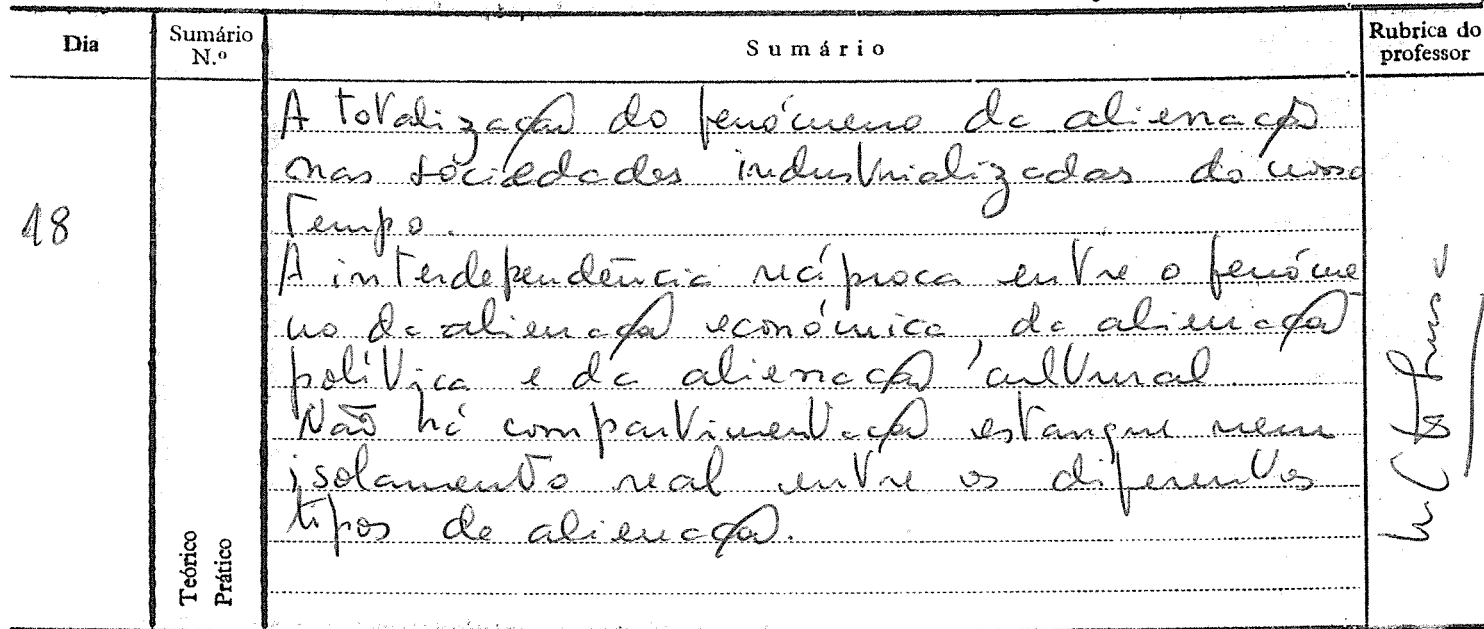 Dia
Sumário N.º
Sumário
Rubrica do professor
18
Teórico
Prático
A totalização do fenómeno da alienação
nas sociedades industrializadas do nosso
tempo.
A interdependência recíproca entre o fenóme
no da alienação económica, da alienação
política e da alienação cultural.
Não há compartimentação estanque nem
isolamento real entre os diferentes
tipos de alienação.